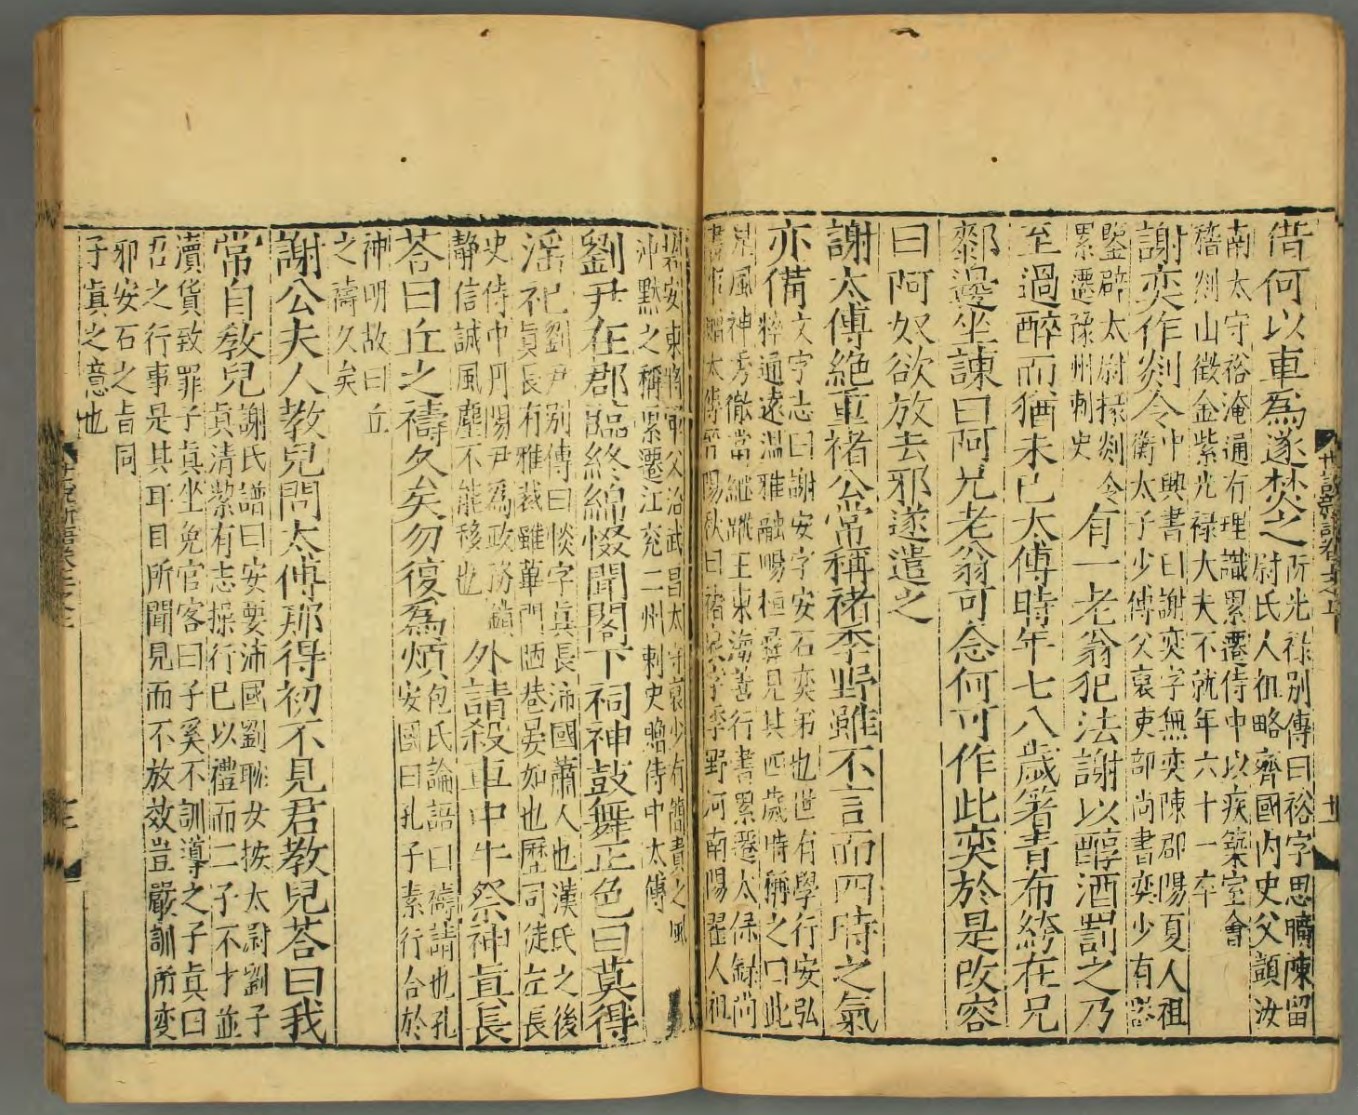 借何以車爲遂焚之
阮光祿別傳曰裕字思曠陳留
尉氏人祖略齊國内史父顗汝
南太守裕淹通有理識累遷侍中以疾築室會
稽剡山徵金紫光祿大夫不就年六十一卒
謝奕作剡令
中興書曰謝奕字無奕陳郡陽夏人祖
衡太子少傅父裒吏部尚書奕少有器
鑒辟太尉掾剡令
累遷豫州刺史
有一老翁犯法謝以醇酒罰之乃
至過醉而猶未已太傅時年七八歲著青布絝在兄
鄰邊坐諫曰阿兄老翁可念何可作此奕於是改容
曰阿奴欲放去邪遂遣之
謝太傅絕重褚公常稱褚季野雖不言而四時之氣
亦備
文字志曰謝安字安石奕弟也世有學行安弘
粹通遠溫雅融暢桓彝見其四歲時稱之曰此
兒風神秀徹當繼蹤王東海善行書累遷太保錄尚
書事贈太傅晉陽秋曰褚裒字季野河南陽翟人祖
䂮安東將軍父治武昌太守裒少有簡貴之風
沖默之稱累遷江兖二州刺史贈侍中太傅
劉尹在郡臨終綿惙聞閣下祠神鼓舞正色曰莫得
淫祀
劉尹别傳曰惔字真長沛國蕭人也漢氏之後
真長有雅裁雖蓽門陋巷晏如也歷司徒左長
史侍中丹陽尹爲政務鎮
静信誠風塵不能移也
外請殺車中牛祭神真長
荅曰丘之禱久矣勿復爲煩
包氏論語曰禱請也孔
安國曰孔子素行合於
神明故曰丘
之禱久矣
謝公夫人教兒問太傅那得初不見君教兒荅曰我
常自敎兒
謝氏譜曰安娶沛國劉耽女按太尉劉子
真清潔有志操行己以禮而二子不才並
瀆貨致罪子真坐免官客曰子奚不訓導之子真曰
吾之行事是其耳目所聞見而不放效豈嚴訓所變
邪安石之旨同
子真之意也